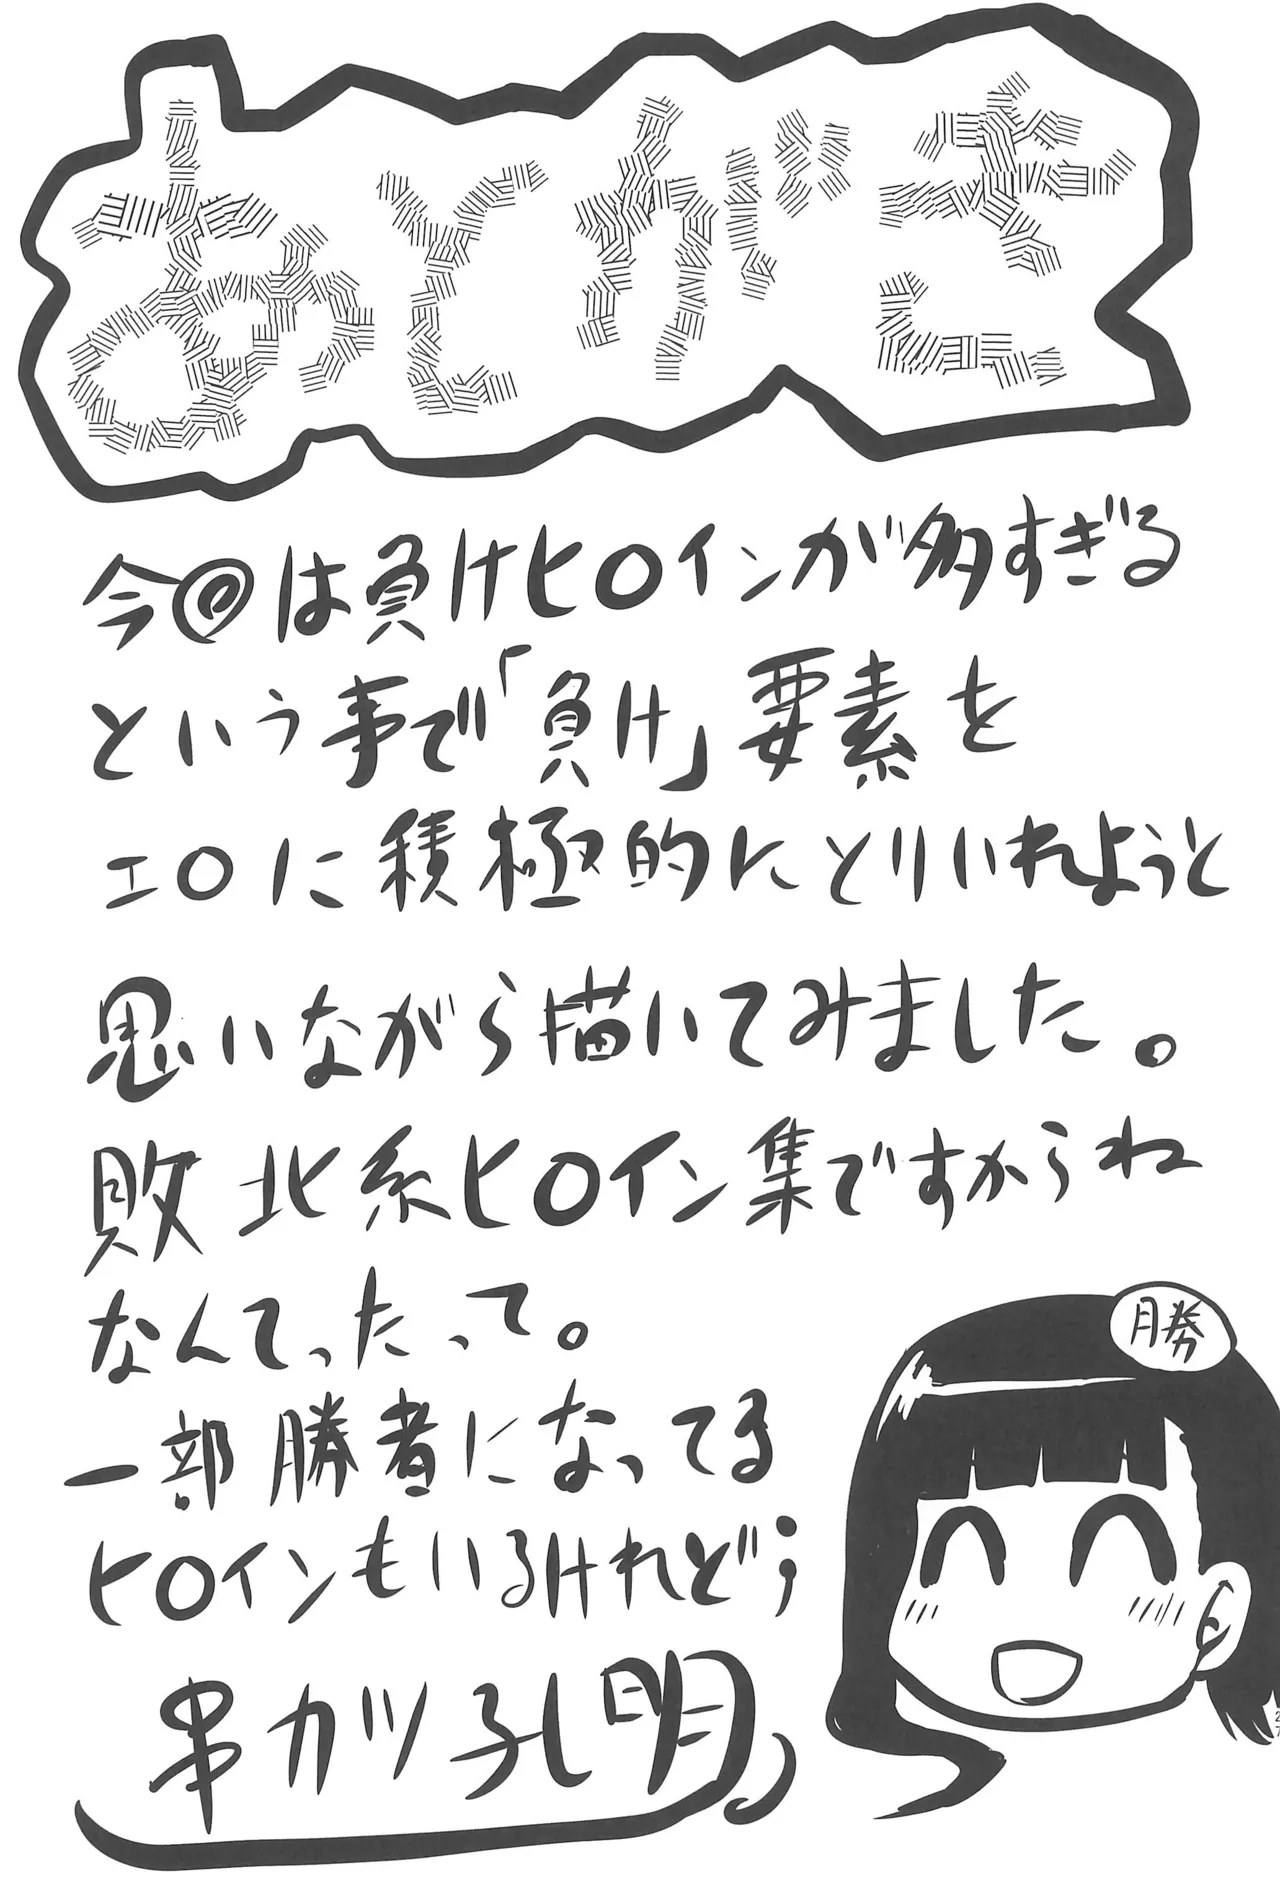 あとがき
今回は負けヒロインが多すぎる
という事で「負け」要素を
エロに積極的にとりいれようと
思いながら描いてみました。
敗北系ヒロイン集ですからね
なんてったって。
一部勝者になってる
ヒロインもいるけれど;
勝
串カツ孔明
27